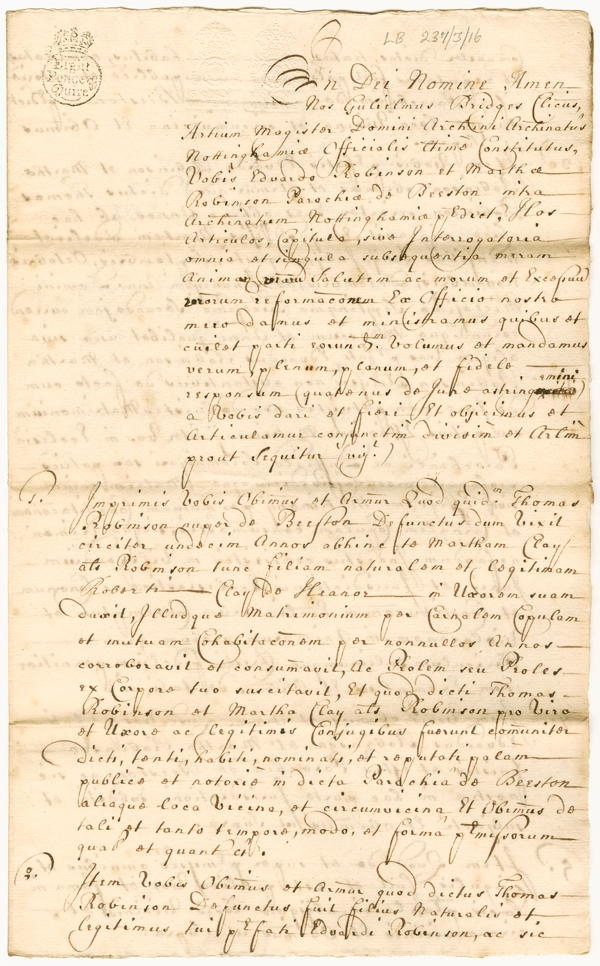 LB 237/3/16
Eight
Pence p
Quire
In Dei Nomine Amen
Nos Gulielmus Bridges Clicus,
Artium Magister Domini Archini Archinatus
Nottinghamiæ Officialis ltimé Constitutus,
Vobis Edvardo Robinson et Marthæ
Robinson Parochiæ de Beeston intra
Archinatum Nottinghamiæ pdict, Hos
Articulos, Capitula, sive Interrogatoria
omnia et singula subsequentia meram
Animar Salutem ac morum et Excessuū
reformacōnem Ex Officio nostro
mero damus et ministramus quibus et
cuilet parti eorundm. Volumus et mandamus
verum, plenum, planum, et fidele
responsum (quatenūs de Jure astringimini)
à Vobis dari et fieri Et objicimus et
Articulamur conjunctim divisim et Artlim
prout Sequitur (vizt.)
1. Imprimis Vobis Obimus et Armur Quod quidm. Thomas
Robinson nuper de Beeston Defunctus dum Vixit
circiter undecim Annos abhinc te Martham Clay
als Robinson tunc filiam naturalem et legitimam
Roberti Clay de Heanor in Uxorem suam
duxit, Illudque Matrimonium per Carnalem Copulam
et mutuam Cohabitacōnem per nonnullos Annos
corroboravit et consumavit, Ac Prolem seu Proles
ex Corpore tuo suscitavit, Et quod dicti Thomas
Robinson et Martha Clay als Robinson pro Viro
et Uxore ac legitimis Conjugibus fuerunt comuniter
dicti, tenti, habiti, nominati, et reputati palàm
publicè et notoriè in dicta Parochia de Beeston
aliisque locis Vicinis, et circumvicinis Et Obimus de
tali et tanto tempore, modo, et formâ pmissorum
2. Item Vobis Obimus et Armur quod dictus Thomas
Robinson Defunctus fuit filius Naturalis et
legitimus tui pfati Edvardi Robinson, ac sic